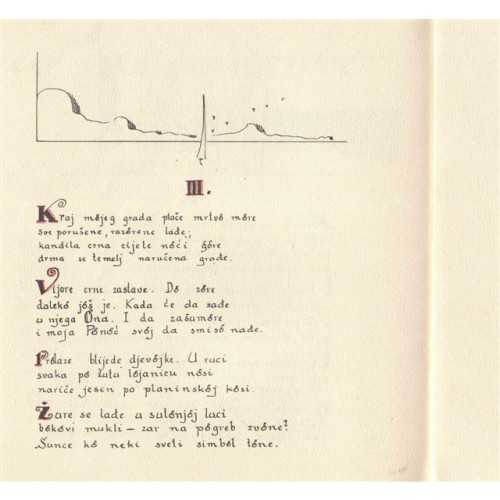 III.
Kraj mojeg grada plače mrtvo more
sve porušene, razorene lađe;
kandila crna cijele noći gore
drma se temelj naručena građe.
Vijore crne zastave. Do zore
daleko još je. Kada će da zađe
u njega Ona. I da zašumore
i moja Ponoć svoj da smiso nađe.
Prolaze blijede djevojke. U ruci
svaka po žutu lojanicu nosi
nariče jesen po planinskoj kosi.
Žure se lađe u sutonjoj luci
bokovi mukli – zar na pogreb zvone?
Sunce ko neki sveti simbol tone.